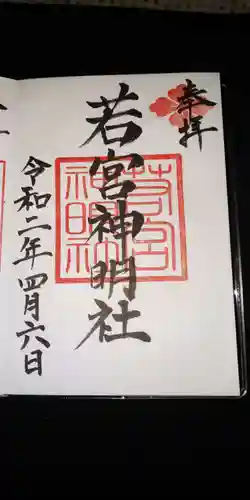 奉拝
若宮神明社
若宮神明社
令和二年四月六日